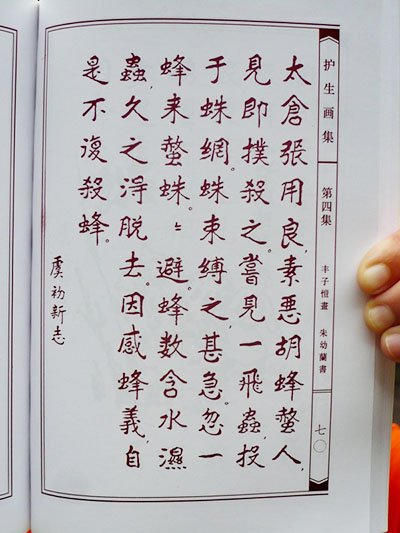 护生画集
第四集
丰子恺畫 朱幼蘭書
七〇
太倉張用良，素悪胡蜂螫人，
見即撲殺之。嘗見一飛蟲，投
于蛛網。蛛束縛之甚急。忽一
蜂来螫蛛。〻避。蜂数含水濕
蟲，久之得脱去。因感蜂義，自
是不復殺蜂。
虞初新志